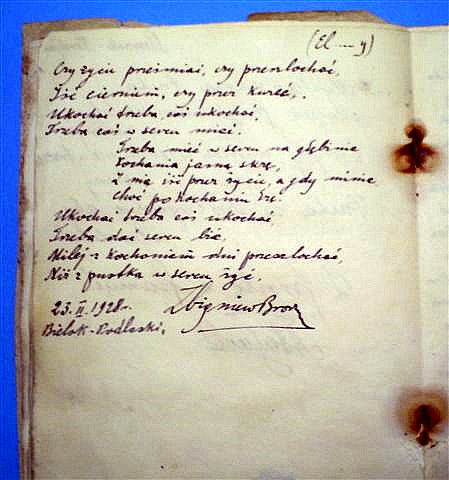 (El----y)
Czy życie prześmiać, czy przeszlochać,
Iść cierniem, czy przez kurz,
Ukochać trzeba coś ukochać,
Trzeba coś w sercu mieć.
Trzeba mieć w sercu na głębinie
Kochania jasną skrę,
Z nią iść przez życie, a gdy minie
Choć po kochaniu łzę.
Ukochać trzeba coś ukochać,
Trzeba dać sercu bić,
Milej z kochaniem dni przeszlochać,
Niż z pustką w sercu żyć.
23.II.1928r. Zbigniew
Bielsk-Podlaski.